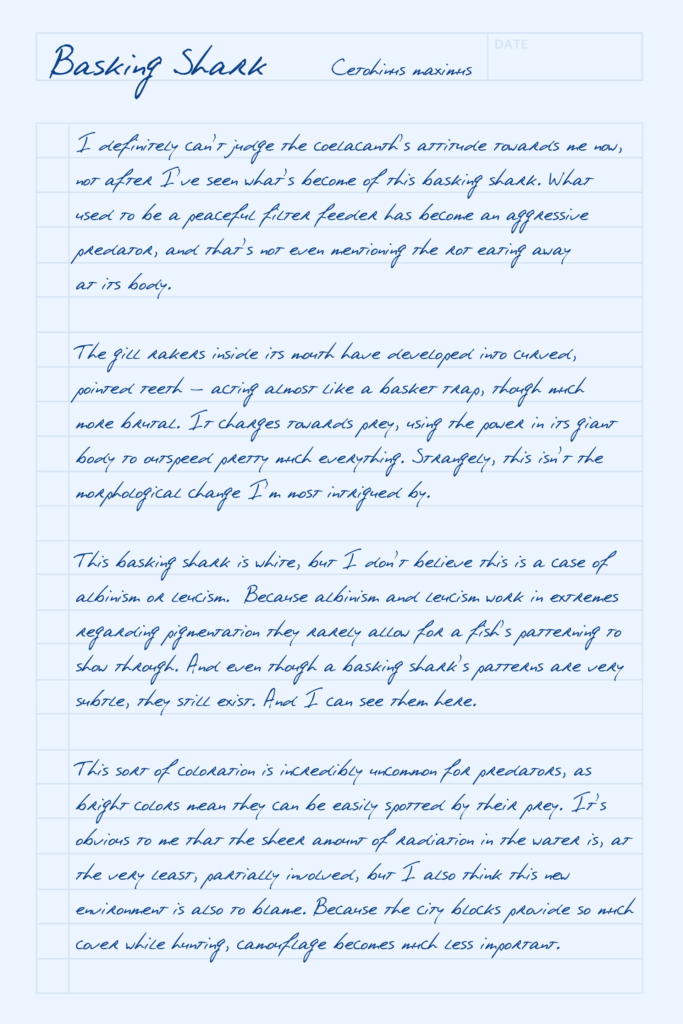 Basking Shark
Cetorhinus maximus
DATE
I definitely can't judge the coelacanth's attitude towards me now,
not after I've seen what's become of this basking shark. What
used to be a peaceful filter feeder has become an aggressive
predator, and that's not even mentioning the rot eating away
at its body.
The gill rakers inside its mouth have developed into curved,
pointed teeth – acting almost like a basket trap, though much
more brutal. It charges towards prey, using the power in its giant
body to outspeed pretty much everything. Strangely, this isn't the
morphological change I'm most intrigued by.
This basking shark is white, but I don't believe this is a case of
albinism or leucism. Because albinism and leucism work in extremes
regarding pigmentation they rarely allow for a fish's patterning to
show through. And even though a basking shark's patterns are very
subtle, they still exist. And I can see them here.
This sort of coloration is incredibly uncommon for predators, as
bright colors mean they can be easily spotted by their prey. It's
obvious to me that the sheer amount of radiation in the water is, at
the very least, partially involved, but I also think this new
environment is also to blame. Because the city blocks provide so much
cover while hunting, camouflage becomes much less important.